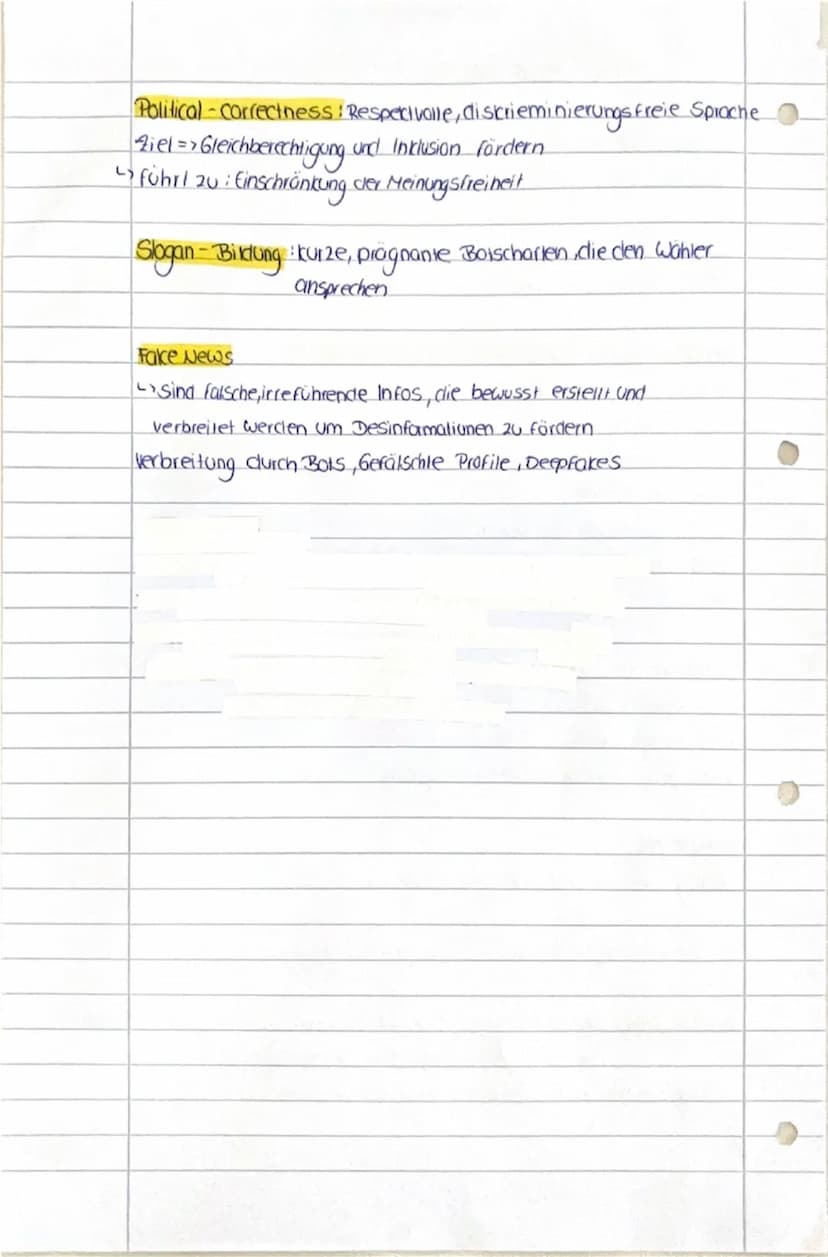 Political-correctness: Respectvolle, diskrieminierungsfreie Sprache
Ziel => Gleichberechtigung und Inklusion fördern
↳ führt zu: Einschränkung der Meinungsfreiheit
Slogan-Bildung: kurze, prägnante Botschaften, die den Wähler
ansprechen
Fake News
↳ sind falsche, irreführende Infos, die bewusst erstellt und
verbreitet werden um Desinformationen zu fördern
Verbreitung durch Bots, Gefälschte Profile, Deepfakes